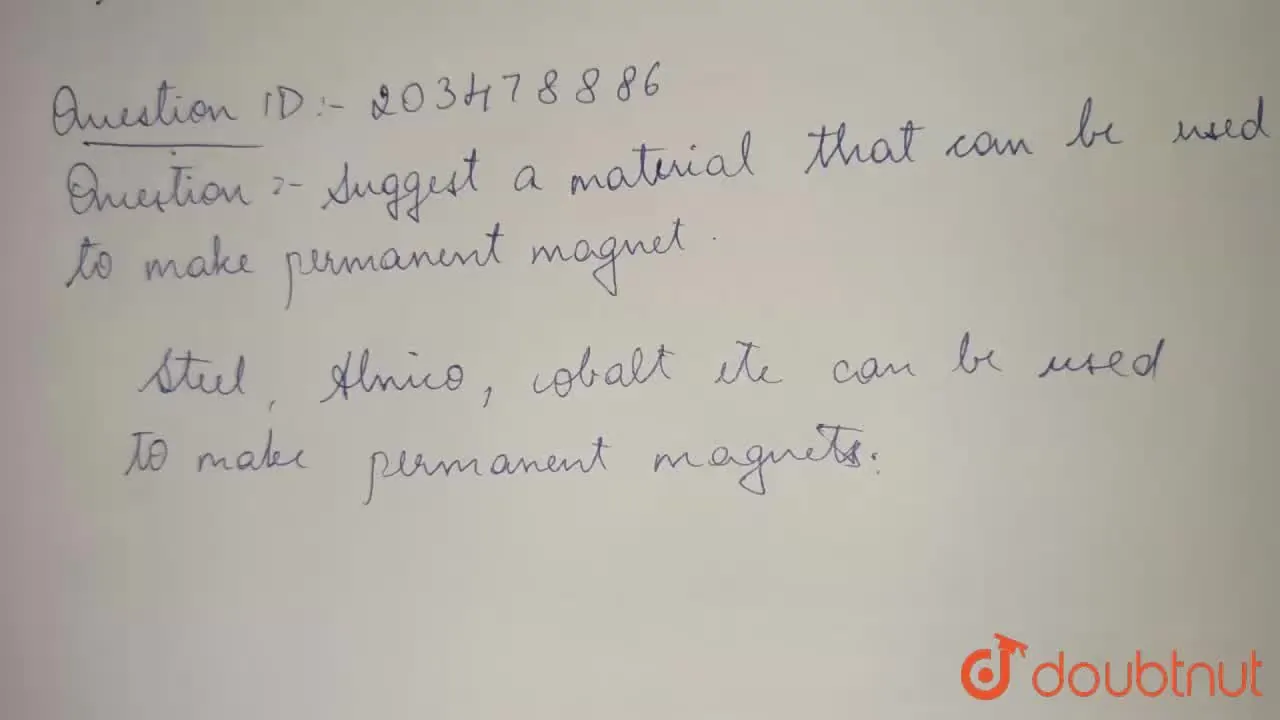 Question ID :- 203478886
Question :- Suggest a material that can be used
to make permanent magnet.
Steel, Alnico, cobalt etc can be used
to make permanent magnets.
doubtnut